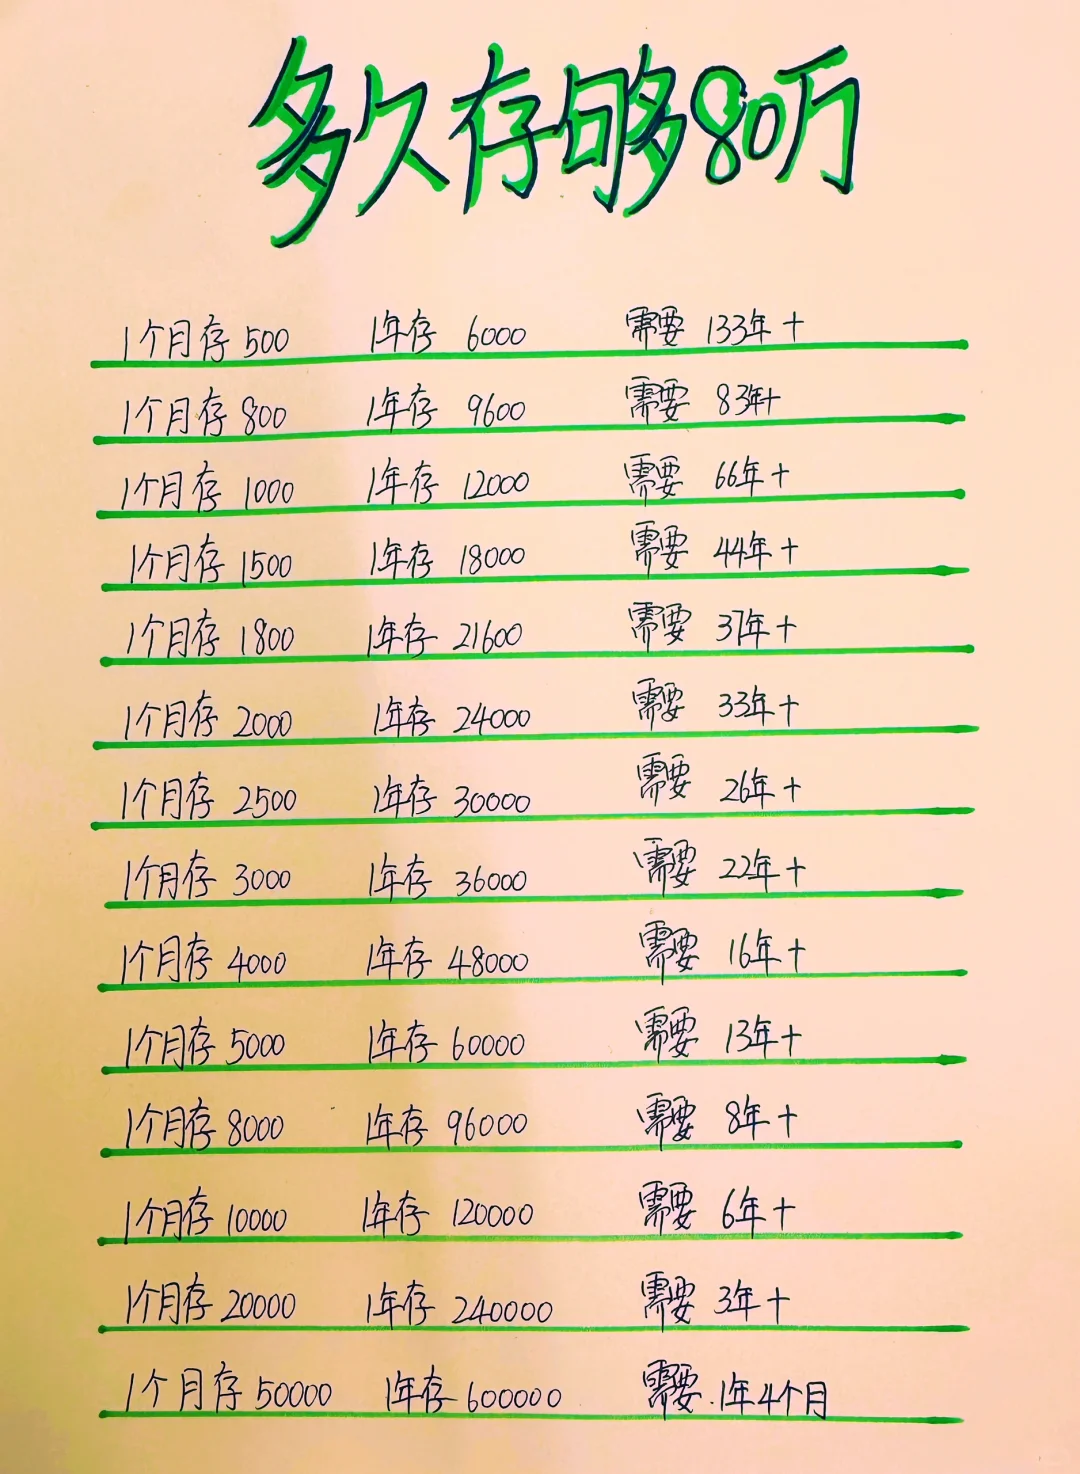 多久存够80万
1个月存 500 1年存 6000 需要 133年+
1个月存 800 1年存 9600 需要 83年+
1个月存 1000 1年存 12000 需要 66年+
1个月存 1500 1年存 18000 需要 44年+
1个月存 1800 1年存 21600 需要 37年+
1个月存 2000 1年存 24000 需要 33年+
1个月存 2500 1年存 30000 需要 26年+
1个月存 3000 1年存 36000 需要 22年+
1个月存 4000 1年存 48000 需要 16年+
1个月存 5000 1年存 60000 需要 13年+
1个月存 8000 1年存 96000 需要 8年+
1个月存 10000 1年存 120000 需要 6年+
1个月存 20000 1年存 240000 需要 3年+
1个月存 50000 1年存 600000 需要 1年4个月